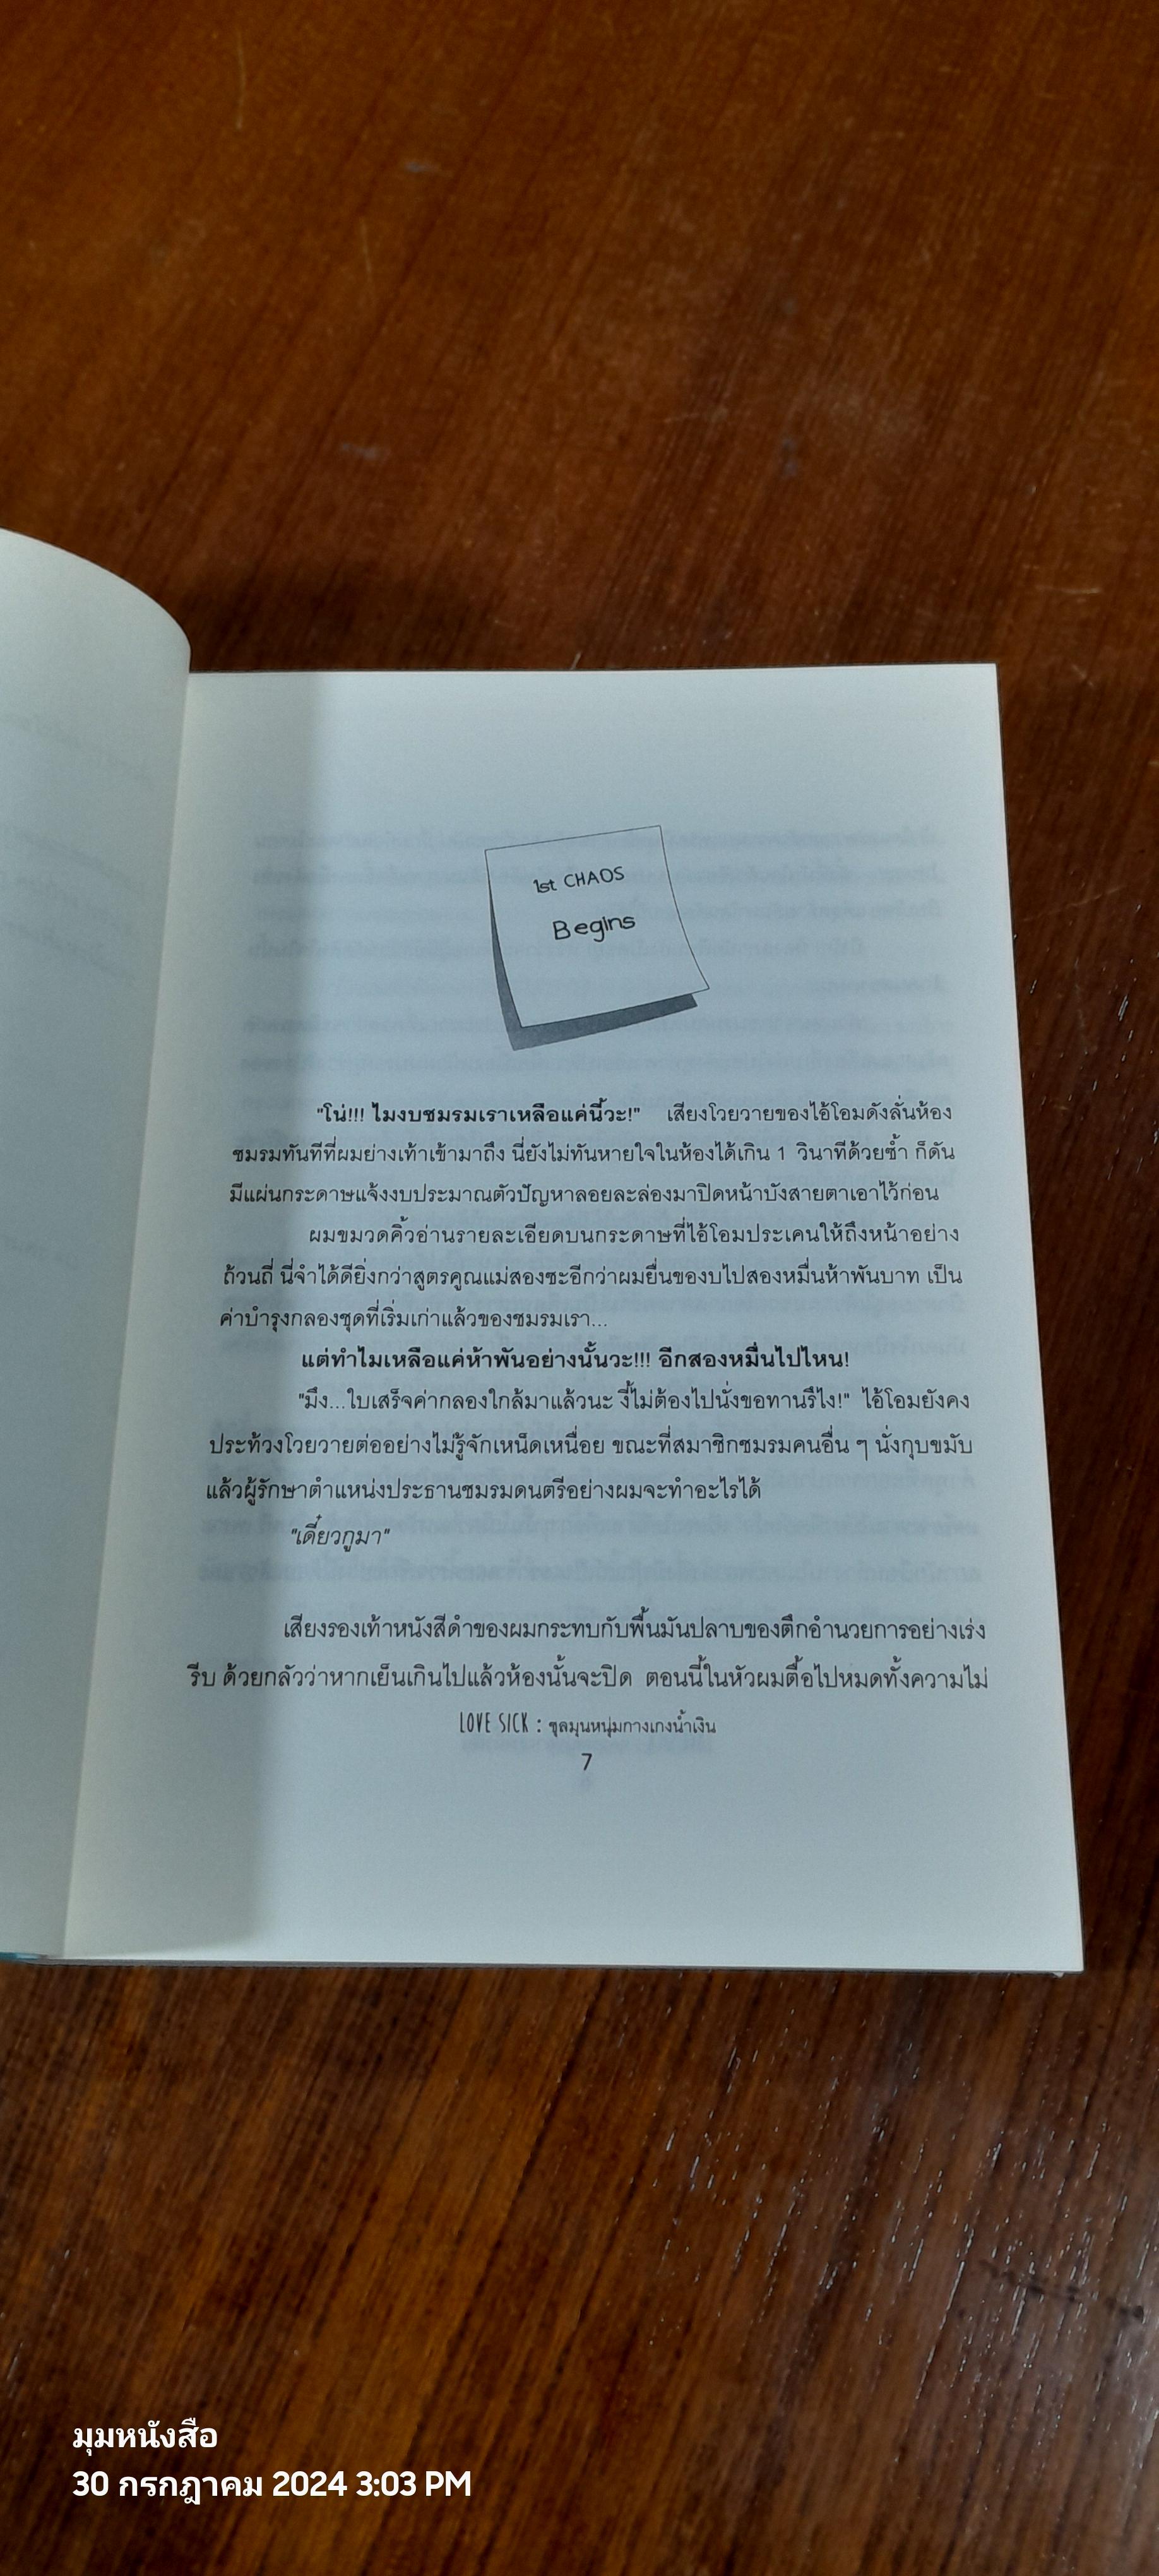 1st CHAOS
Begins
"โน่!!! ไมงบชมรมเราเหลือแค่นี้วะ!" เสียงโวยวายของไอ้โอมดังลั่นห้อง
ชมรมทันทีที่ผมย่างเท้าเข้ามาถึง นี่ยังไม่ทันหายใจในห้องได้เกิน 1 วินาทีด้วยซ้ำ ก็ดัน
มีแผ่นกระดาษแจ้งงบประมาณตัวปัญหาลอยละล่องมาปิดหน้าบังสายตาเอาไว้ก่อน
ผมขมวดคิ้วอ่านรายละเอียดบนกระดาษที่ไอ้โอมประเคนให้ถึงหน้าอย่าง
ถ้วนถี่ นี่จำได้ดียิ่งกว่าสูตรคูณแม่สองซะอีกว่าผมยื่นของบไปสองหมื่นห้าพันบาท เป็น
ค่าบำรุงกลองชุดที่เริ่มเก่าแล้วของชมรมเรา...
แต่ทำไมเหลือแค่ห้าพันอย่างนั้นวะ!!! อีกสองหมื่นไปไหน!
"มึง...ใบเสร็จค่ากลองใกล้มาแล้วนะ งี้ไม่ต้องไปนั่งขอทานรึไง!" ไอ้โอมยังคง
ประท้วงโวยวายต่ออย่างไม่รู้จักเหน็ดเหนื่อย ขณะที่สมาชิกชมรมคนอื่น ๆ นั่งกุบขมับ
แล้วผู้รักษาตำแหน่งประธานชมรมดนตรีอย่างผมจะทำอะไรได้
"เดี๋ยวกูมา"
เสียงรองเท้าหนังสีดำของผมกระทบกับพื้นมันปลาบของตึกอำนวยการอย่างเร่ง
รีบ ด้วยกลัวว่าหากเย็นเกินไปแล้วห้องนั้นจะปิด ตอนนี้ในหัวผมตื้อไปหมดทั้งความไม่
LOVE SICK : ชุลมุนหนุ่มกางเกงน้ำเงิน
7
มุมหนังสือ
30 กรกฎาคม 2024 3:03 PM